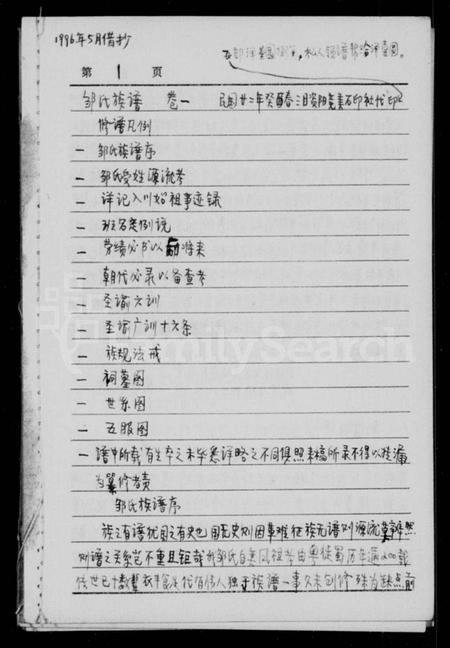 1996年5月借抄
第 1 页
邹氏族谱 卷一 民国廿二年癸酉春三月资阳竞美石印社代印
修谱凡例
一 邹氏族谱序
一 邹氏受姓源流考
一 详记入川始祖事迹录
一 班名定例说
一 劳绩必书以励将来
一 朝代必录以备查考
一 圣谕六训
一 圣谕广训十六条
一 族规法戒
一 祠墓图
一 世系图
一 五服图
一 谱中所载有生卒之未毕悉详略之不同俱照来稿所录不得以挂漏
为纂修者责
邹氏族谱序
族之有谱犹国之有史也国无史则因革难征族无谱则源流莫辨然
则谱之关系岂不重且钜哉我邹氏自 祖考由粤徙蜀历年满二〇〇载
传世已十数 代有传人独于族谱一事久未创修殊为缺点前
FamilySearch